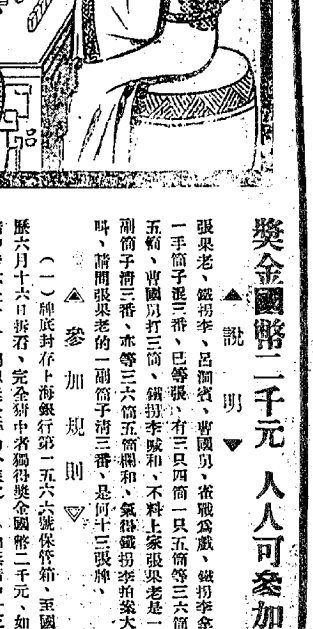 獎金國幣二千元 人人可參加
▲說明▼
張果老、鐵拐李、呂洞賓、曹國舅、雀戰為戲、鐵拐李全
一手筒子混三番、已等張、有三只四筒一只五筒等三六筒
五筒、曹國舅打三筒、鐵拐李喊和、不料上家張果老是一
副筒子清三番、亦等三六筒五筒攔和、氣得鐵拐李拍案大
叫、請問張果老的一副筒子清三番、是何十三張牌、
△參加規則▽
（一）牌底封存上海銀行第一五六六號保管箱、至國
歷六月十六日拆看、完全猜中者獨得獎金國幣二千元、如